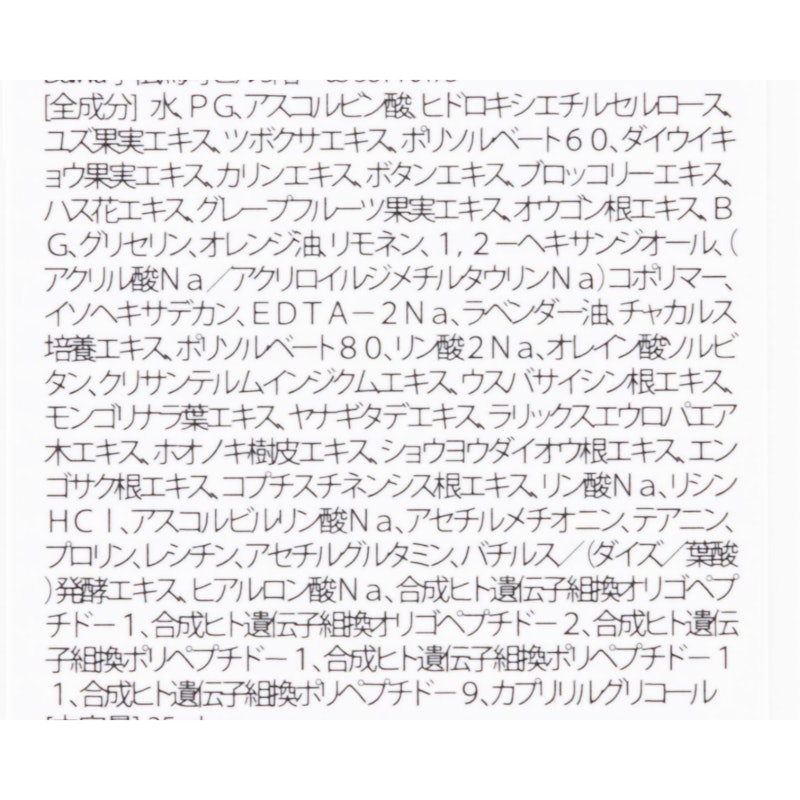 [全成分] 水、ＰＧ、アスコルビン酸、ヒドロキシエチルセルロース、
ユズ果実エキス、ツボクサエキス、ポリソルベート６０、ダイウイキ
ョウ果実エキス、カリンエキス、ボタンエキス、ブロッコリーエキス、
ハス花エキス、グレープフルーツ果実エキス、オウゴン根エキス、Ｂ
Ｇ、グリセリン、オレンジ油、リモネン、１，２－ヘキサンジオール、（
アクリル酸Ｎａ／アクリロイルジメチルタウリンＮａ）コポリマー、
イソヘキサデカン、ＥＤＴＡ－２Ｎａ、ラベンダー油、チャカルス
培養エキス、ポリソルベート８０、リン酸２Ｎａ、オレイン酸ソルビ
タン、クリサンテルムインジクムエキス、ウスバサイシン根エキス、
モンゴリナラ葉エキス、ヤナギタデエキス、ラリックスエウロパエア
木エキス、ホオノキ樹皮エキス、ショウヨウダイオウ根エキス、エン
ゴサク根エキス、コプチスチネンシス根エキス、リン酸Ｎａ、リシン
ＨＣｌ、アスコルビルリン酸Ｎａ、アセチルメチオニン、テアニン、
プロリン、レシチン、アセチルグルタミン、バチルス／（ダイズ／葉酸
）発酵エキス、ヒアルロン酸Ｎａ、合成ヒト遺伝子組換オリゴペプ
チド－１、合成ヒト遺伝子組換オリゴペプチド－２、合成ヒト遺伝
子組換ポリペプチド－１、合成ヒト遺伝子組換ポリペプチド－１
１、合成ヒト遺伝子組換ポリペプチド－９、カプリリルグリコール